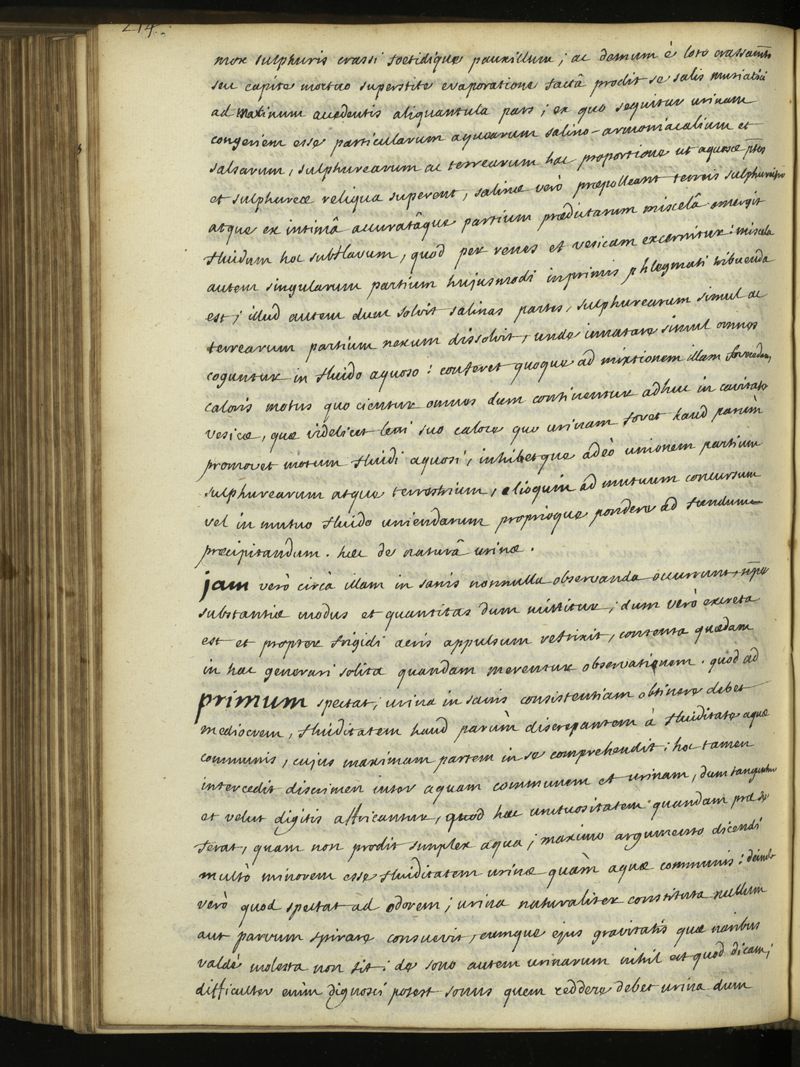 214.
mox sulphuris crassi foetidique pauxillum; ac demum è loto crassamto
seu capite mortuo superstite evaporatione factâ prodit se salis muriatici
ad marinum accedentis aliquantula pars; ex quo sequitur urinam
congeriem esse particularum aquearum salino-armoniacalium et
salsarum, sulphurearum ac terrearum hac proportione ut aqueae ptes
et sulphureæ reliqua superent, salinæ verò præpolleant terreis sulphureisq
atque ex intimâ accuratâque partium prædictarum miscelâ emergit
fluidum hoc subflavum, quod per renes et vesicam excernitur: miscela
autem singularum partium hujusmodi inprimis phlegmati tribuenda
est; illud autem dum solvit salinas partes, sulphurearum simul ac
terrearum partium nexum dissolvit, unde innatare simul omnes
coguntur in fluido aquoso: confert quoque ad mixtionem illam fovendam
caloris motus quo cientur omnes dum continentur adhuc in cavitate
vesicæ, quæ videlicet leni suo calore quo urinam fovet haud parùm
promovet motum fluidi aquosi, inhibetque adeò unionem partium
sulphurearum atque terrestrium, alioquin ad mutuum concursum
vel in mutuo fluido uniendarum proprioque pondere ad fundum
præcipitandum. hæc de naturâ urinæ.
jam verò circà illam in sanis nonnulla observanda occurrunt, npe
substantiæ modus et quantitas dum mittitur; dum verò excreta
est et propter frigidi aeris appulsum refrixit, contenta quædam
in hac generari solita quandam merentur observationem. quod ad
primum spectat; urina in sanis consistentiam obtinere debet
mediocrem, fluiditatem haud parùm discrepantem à fluiditate aquæ
communis, cujus maximam partem in se comprehendit: hoc tamen
intercedit discrimen inter aquam communem et urinam, dum tanguntur
et velut digitis affricantur, quod hæc unctuositatem quandam præ se
ferat, quam non prodit simplex aqua; maximo argumento dicendi
multò minorem esse fluiditatem urinæ quàm aquæ communis: deinde
verò quod spectat ad odorem; urina naturaliter constituta nullum
aut parvum spirare consuevit, eumque ejus gravitatis quæ naribus
valdè molesta non sit: de sono autem urinarum nihil est quod dicam;
difficulter enim dignosci potest sonus quem reddere debet urina dum